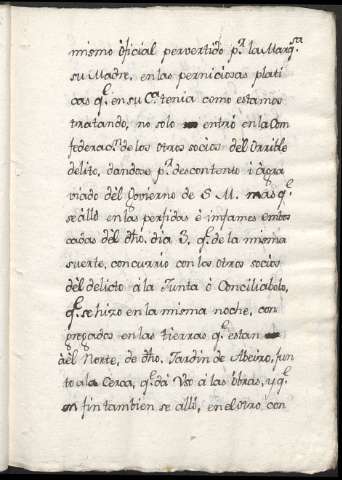 mismo oficial pervertido p.r la Marq.sa
su Madre, en las perniciosas plati
cas q.e en su C.a tenia como estamos
tratando, no solo entró en la Con
federac.n de los otros socios del Orrible
delito, dandose p.r descontento i agra
viado del Govierno de S M. mas q.e
se alló en las perfidas é infames embos
cadas del dho. dia 3. q.e de la misma
suerte, concurrio con los otros socios
del delicto á la Junta ó Conciliabolo,
q.e se hizo en la misma noche, con
gregados en las tierras q.e estan
del Norte, de dho. Jardin de Abeiro, jun
to a la Cerca, q.e dá Uso a las obras, y q.e
en fin tambien se alló, en el otro con